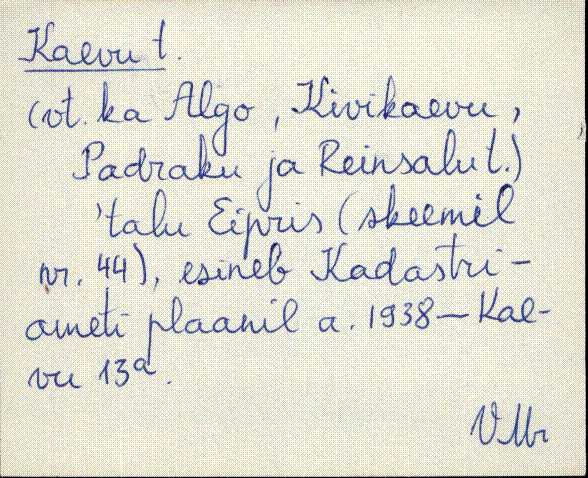 Kaevu t.
(vt. ka Algo, Kivikaevu,
Padraku ja Reinsalu t.)
'talu Eipris (skeemil
nr. 44), esineb Kadastri-
ameti plaanil a. 1938 — Kae-
vu 13a.
VMr